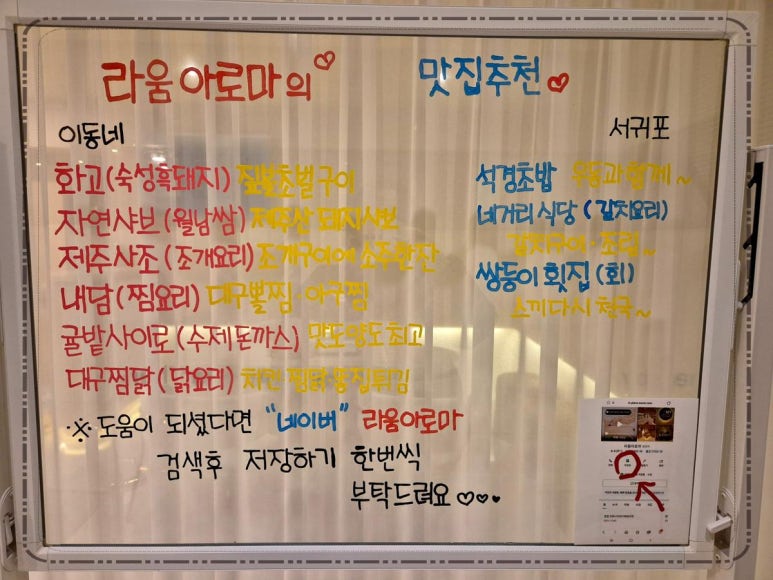 라움아로마의 맛집추천
이동네
화고(숙성흑돼지) 짚불초벌구이
자연샤브(월남쌈) 제주산 돼지샤브
제주사조(조개요리) 조개구이에 소주한잔
내담(찜요리) 대구뽈찜·아구찜
귤밭사이로(수제돈까스) 맛도양도최고
대구찜닭(닭요리) 치킨 찜닭 똥집튀김
서귀포
석경초밥 우동과 함께~
네거리식당(갈치요리)
갈치구이·조림~
쌍둥이횟집(회)
스끼다시 천국~
※ 도움이 되셨다면 "네이버" 라움아로마
검색후 저장하기 한번씩
부탁드려요